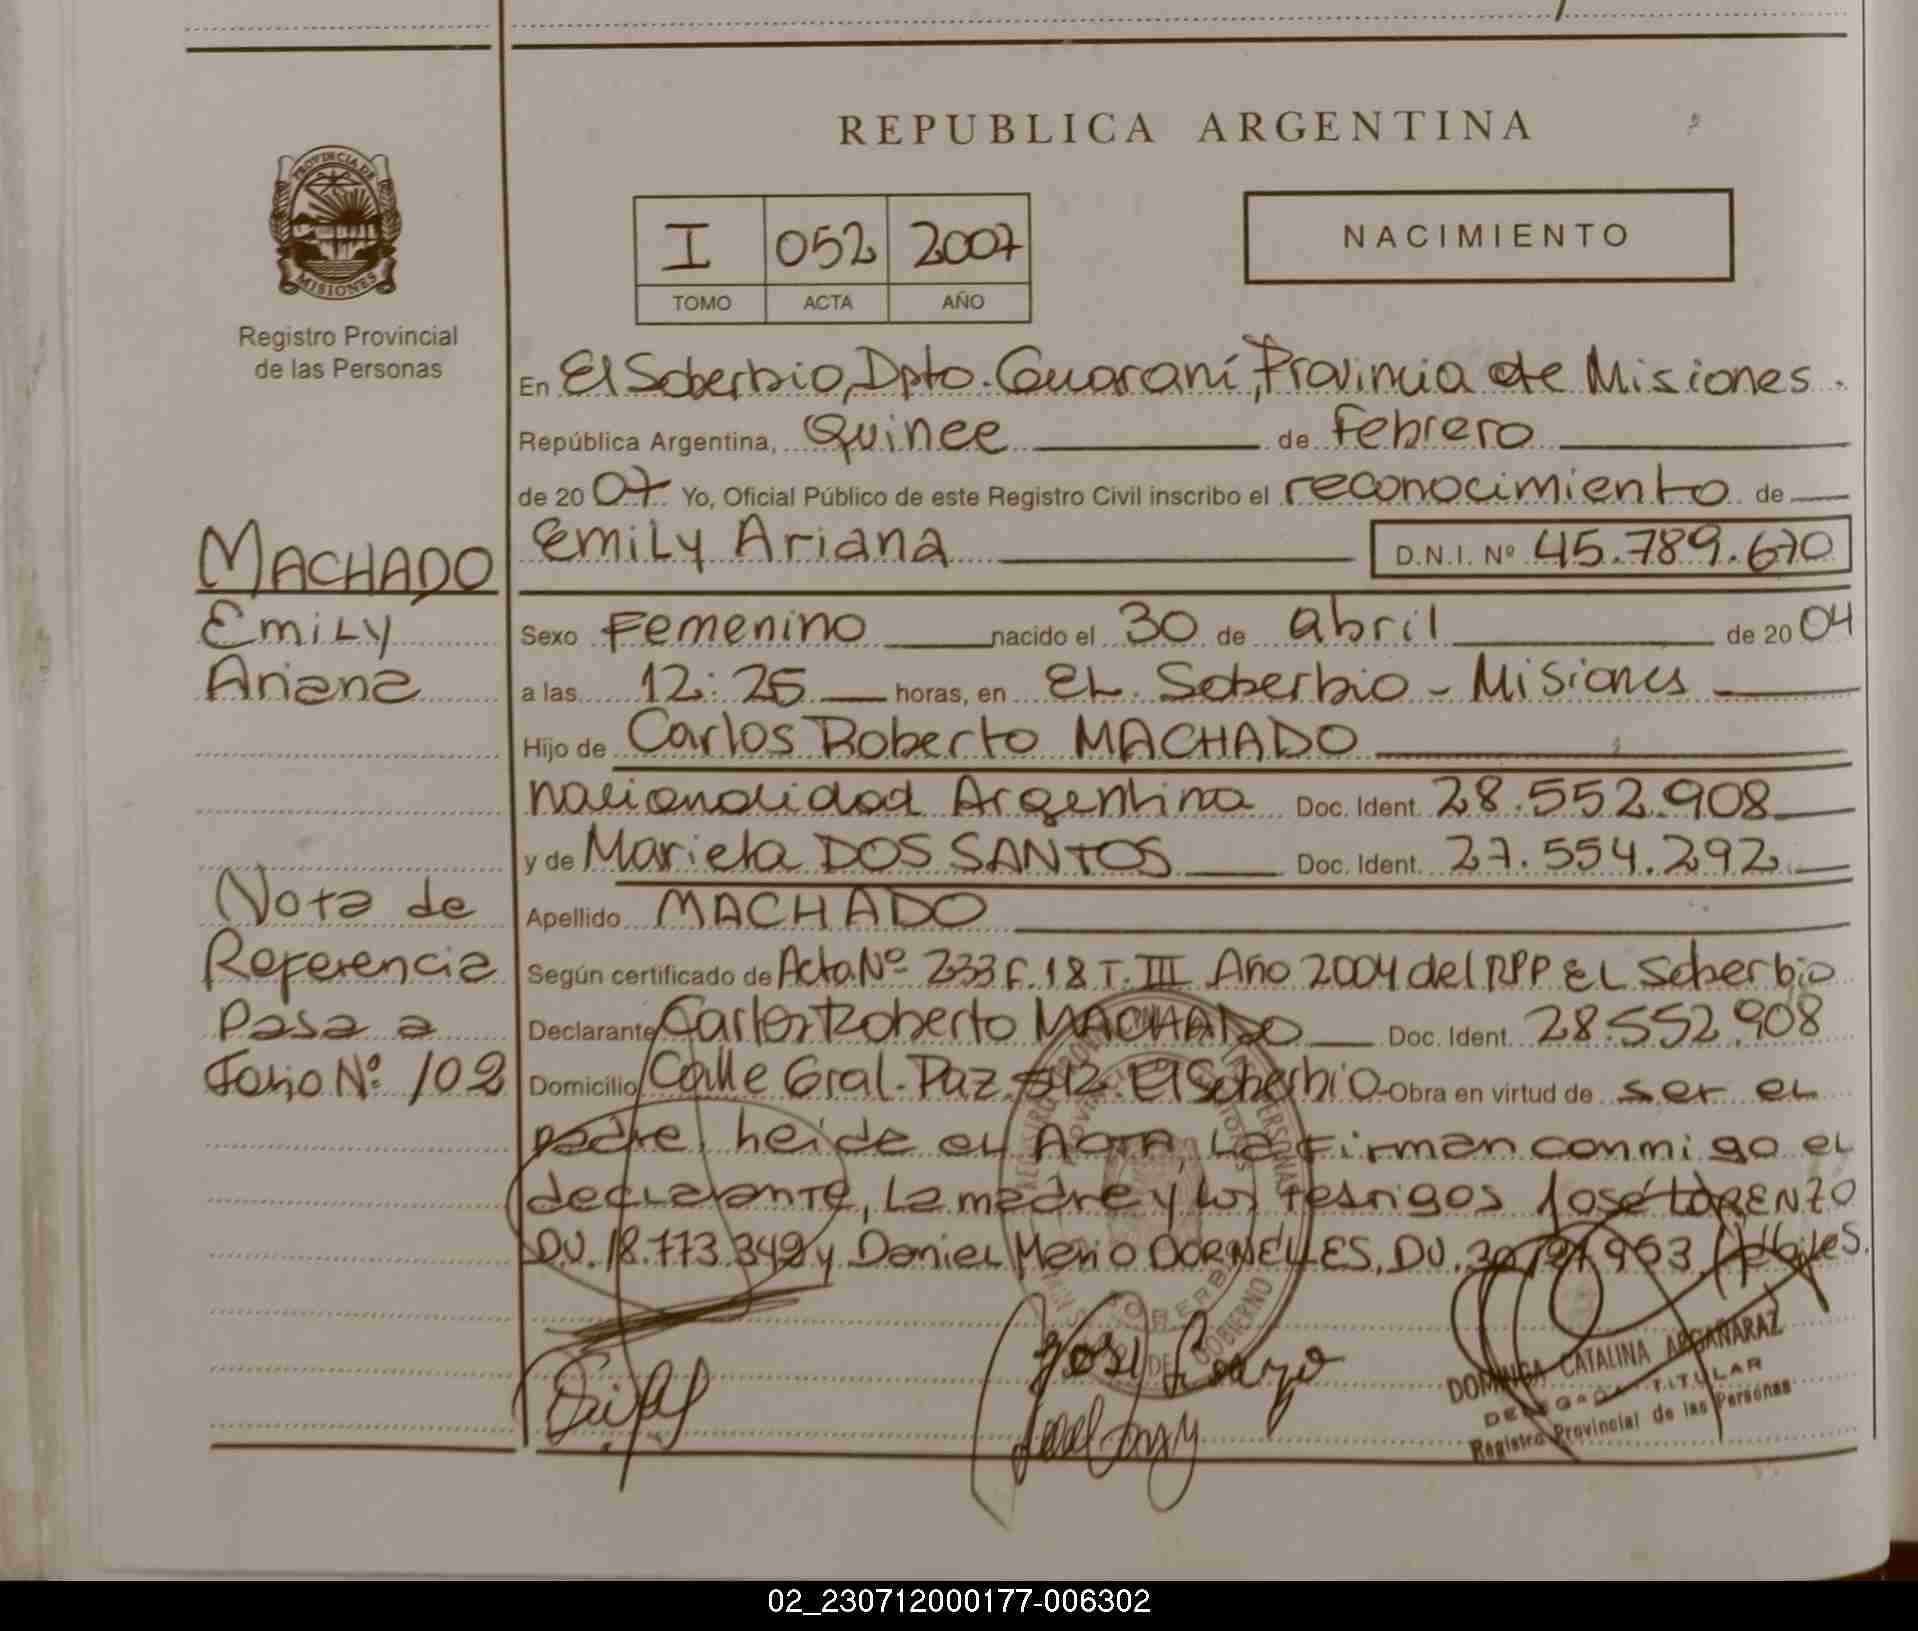 REPUBLICA ARGENTINA
PROVINCIA DE
MISIONES
Registro Provincial
de las Personas
I 052 2007
TOMO ACTA AÑO
NACIMIENTO
En El Soberbio, Dpto. Guaraní, Provincia de Misiones.
República Argentina, Quince de Febrero
de 2007 Yo, Oficial Público de este Registro Civil inscribo el reconocimiento de
MACHADO
Emily
Ariana
Emily Ariana D.N.I. Nº 45.789.670
Sexo Femenino nacido el 30 de abril de 2004
a las 12:25 horas, en El Soberbio - Misiones
Hijo de Carlos Roberto MACHADO
nacionalidad Argentina Doc. Ident. 28.552.908
y de Mariela DOS SANTOS Doc. Ident. 27.554.292
Apellido MACHADO
Según certificado de Acta Nº 233 F. 18 T. III Año 2004 del RPP El Soberbio
Declarante Carlos Roberto MACHADO Doc. Ident. 28.552.908
Domicilio Calle Gral. Paz 512 El Soberbio - Obra en virtud de ser el
padre, leida el Acta, la firman conmigo el
declarante, la madre y los testigos José LORENZO
DU. 18.773.349 y Daniel DORNELLES, DU.
Nota de
Referencia
Pasa a
Folio Nº 102
DOMINGA CATALINA ARGAÑARAZ
DELEGADA TITULAR
Registro Provincial de las Personas
02_230712000177-006302